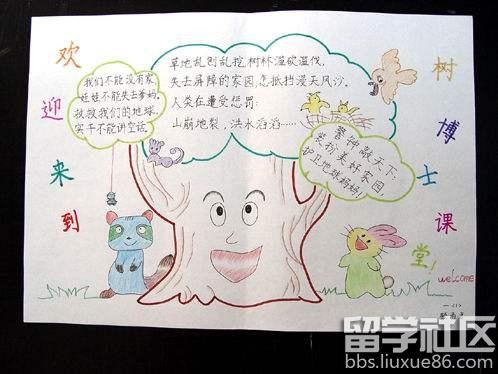 欢迎来到
树博士课堂!
welcome
草地乱割乱挖,树林滥砍滥伐,
失去屏障的家园,怎抵挡漫天风沙。
人类在遭受惩罚:
山崩地裂,洪水滔滔……
我们不能没有家,
娃娃不能失去爹妈,
救救我们的地球,
实干不能讲空话。
警钟敲天下:
装扮美好家园,
护卫地球妈妈!
一<1>
留学社区
bbs.liuxue86.com